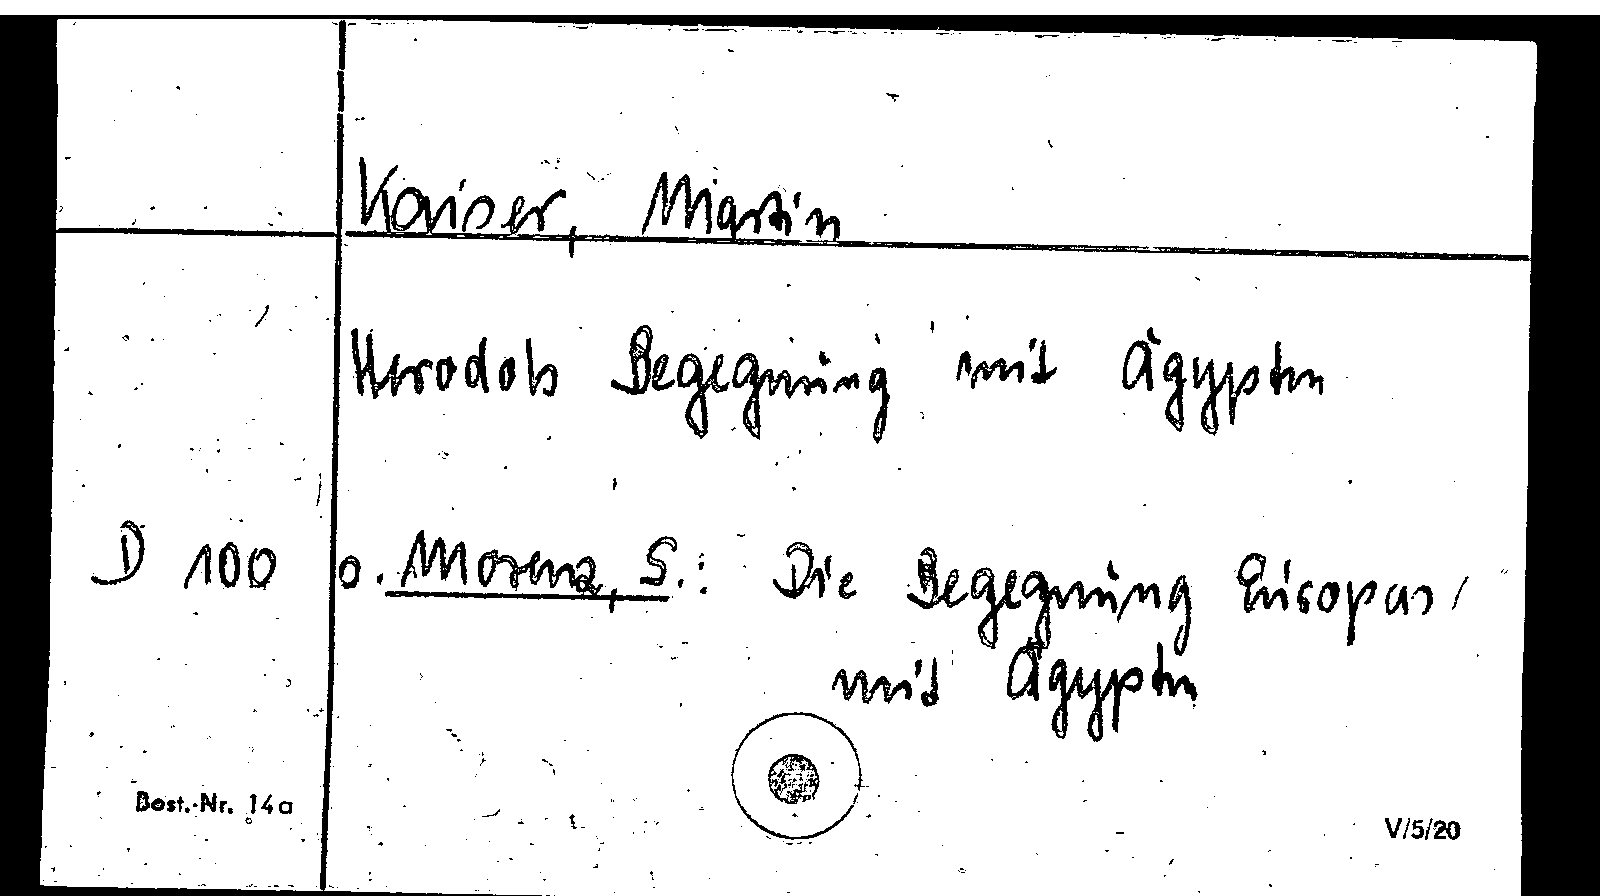 Kaiser, Martin
Herodots Begegnung mit Ägypten
D 100 o. Morenz, S.: Die Begegnung Europas
mit Ägypten
Best.-Nr. 14a
V/5/20